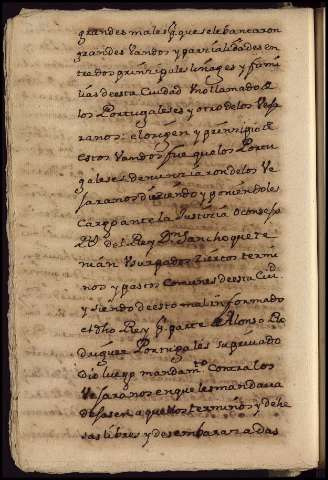 grandes males q̃ se lebantaron
grandes Vandos y parzialidades en
tre dos prinzipales linages y fami
lias de esta Ciudad Vno llamado de
los Portugaleses y otro de los Veja
ranos: el origen y prinzipio de
estos Vandos fue que los Portu
galeses denunziaron de los Ve
jaranos diziendo y poniendoles
Cargo ante la Justizia o consejo
Rl. del Rey Dn. Sancho que te
nian Vsurpados ziertos termi
nos y pastos Comunes de esta Ciud.
y siendo de esto mal informado
el dho Rey pr. parte de Alonso Ro
driguez Portugales su privado
Dio luego mandamto. Contra los
Vejaranos en que les mandava
dejasen aquellos terminos y dehe
sas libres y desembarazadas